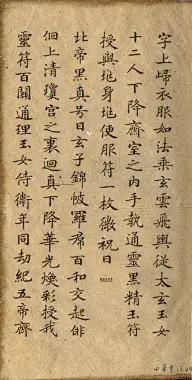 字上歸衣服如法乘玄雲飛輿從太玄玉女
十二人下降齋室之内手執通靈黑精玉符
授與身便服符一枚微祝曰
北帝黑真号曰玄錦帔羅席百和交起俳
佪上清瓊宮之裏迴真下降華光煥彩授我
靈符百關通理玉女侍衛年同劫紀五帝齊